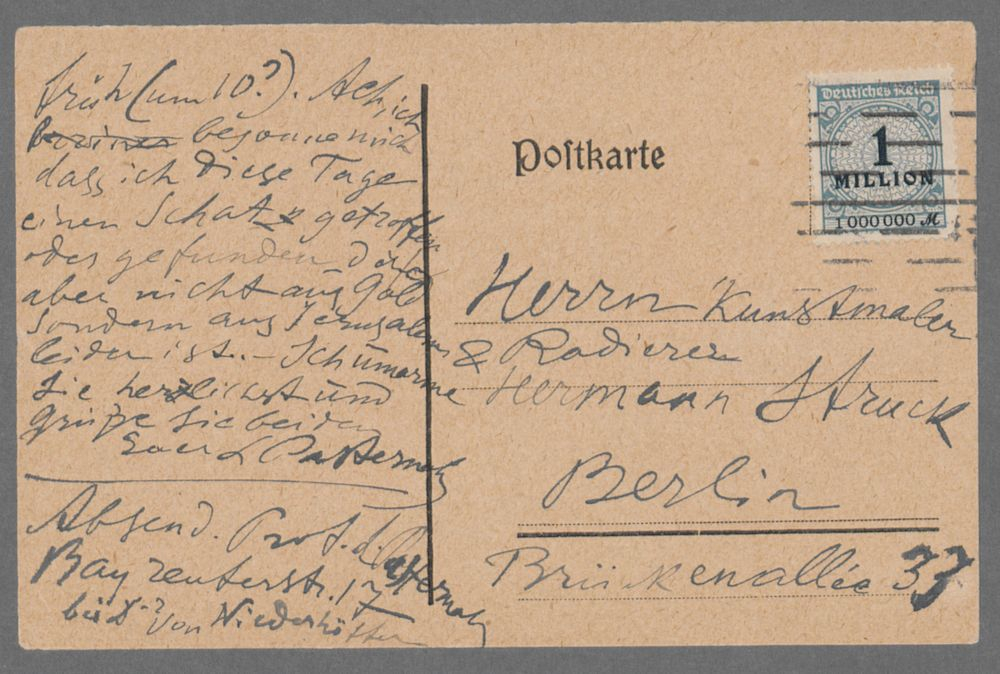 früh (um 10?). Ach, ich
besonne mich
dass ich diese Tage
einen Schatz getroffen
oder gefunden
aber nicht aus Gold
sondern aus Jerusalem
leider ist. – Ich umarme
Sie herzlichst und
grüße Sie beiden
Euer L Pasternak
Absend. Prof. L. Pasternak
Bayreuterstr. 17
bei von
Postkarte
Deutsches Reich
1
MILLION
1000000 M
Herrn Kunstmaler
& Radierer
Hermann Struck
Berlin
Brückenallée 33